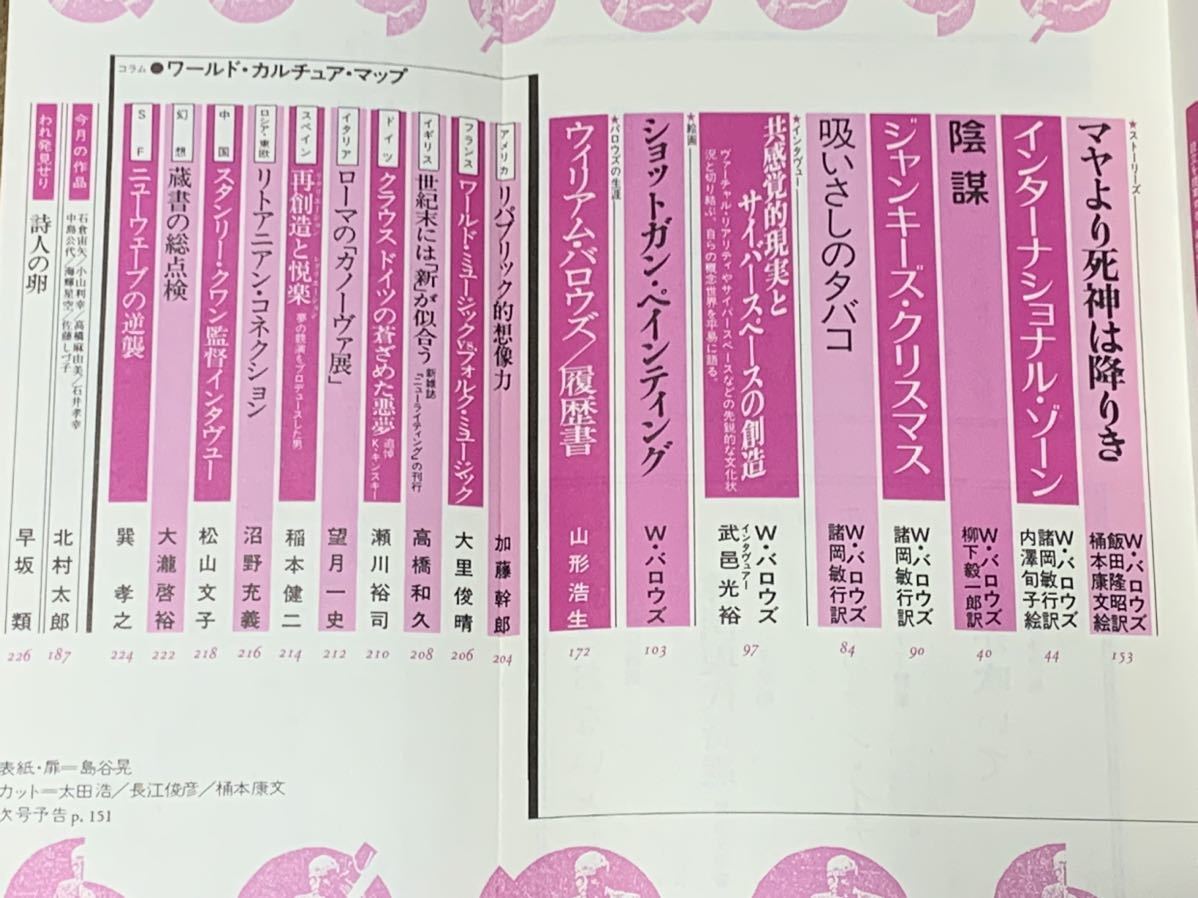 ★ストーリーズ
マヤより死神は降りき
W・バロウズ
飯田隆昭訳
桶本康文絵
153
インターナショナル・ゾーン
W・バロウズ
諸岡敏行訳
内澤旬子絵
44
陰謀
W・バロウズ
柳下毅一郎訳
40
ジャンキーズ・クリスマス
W・バロウズ
諸岡敏行訳
90
吸いさしのタバコ
W・バロウズ
諸岡敏行訳
84
★インタヴュー
共感覚的現実と
サイバースペースの創造
ヴァーチャル・リアリティやサイバースペースなどの先鋭的な文化状
況と切り結ぶ、自らの概念世界を平易に語る。
W・バロウズ
インタヴュアー
武邑光裕
97
★絵画
ショットガン・ペインティング
W・バロウズ
103
★バロウズの生涯
ウィリアム・バロウズ/履歴書
山形浩生
172
コラム●ワールド・カルチュア・マップ
アメリカ
リパブリック的想像力
加藤幹郎
204
フランス
ワールド・ミュージックvs.フォルク・ミュージック
大里俊晴
206
イギリス
世紀末には「新」が似合う
新雑誌
『ニューライティング』の刊行
高橋和久
208
ドイツ
クラウス ドイツの蒼ざめた悪夢
追悼
K・キンスキー
瀬川裕司
210
イタリア
ローマの「カノーヴァ展」
望月一史
212
スペイン
再創造と悦楽
リクリエーション
レクリエーション
夢の競演をプロデュースした男
稲本健二
214
ロシア・東欧
リトアニアン・コネクション
沼野充義
216
中国
スタンリー・クワン監督インタヴュー
松山文子
218
幻想
蔵書の総点検
大瀧啓裕
222
SF
ニューウェーブの逆襲
巽孝之
224
今月の作品
石倉宙矢/小山利幸/高橋麻由美/石井孝幸
中島公代/海輝星空/佐藤しづ子
北村太郎
187
われ発見せり
詩人の卵
早坂類
226
表紙・扉=島谷晃
カット=太田浩/長江俊彦/桶本康文
次号予告p. 151